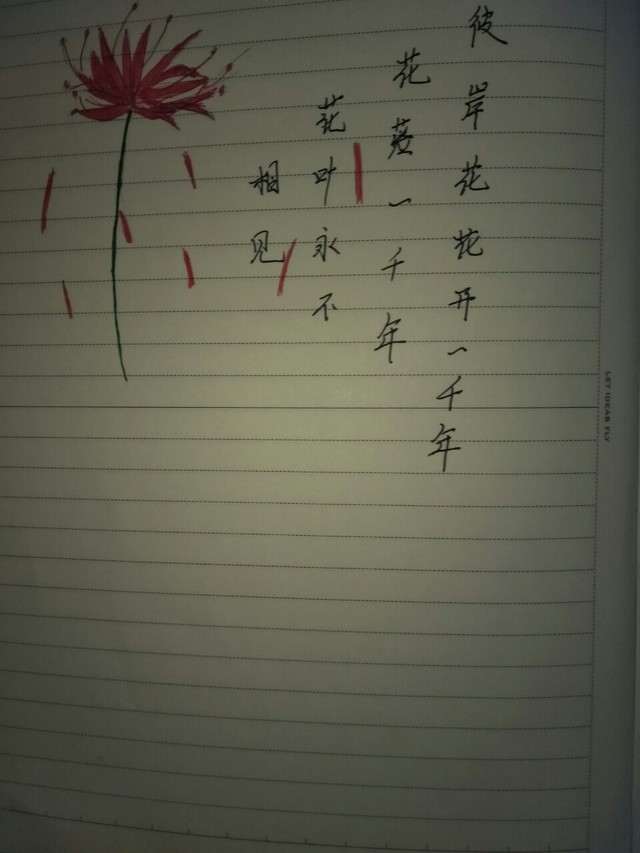 彼岸花花开一千年
花落一千年
花叶永不
相见
LET IDEAS FLY